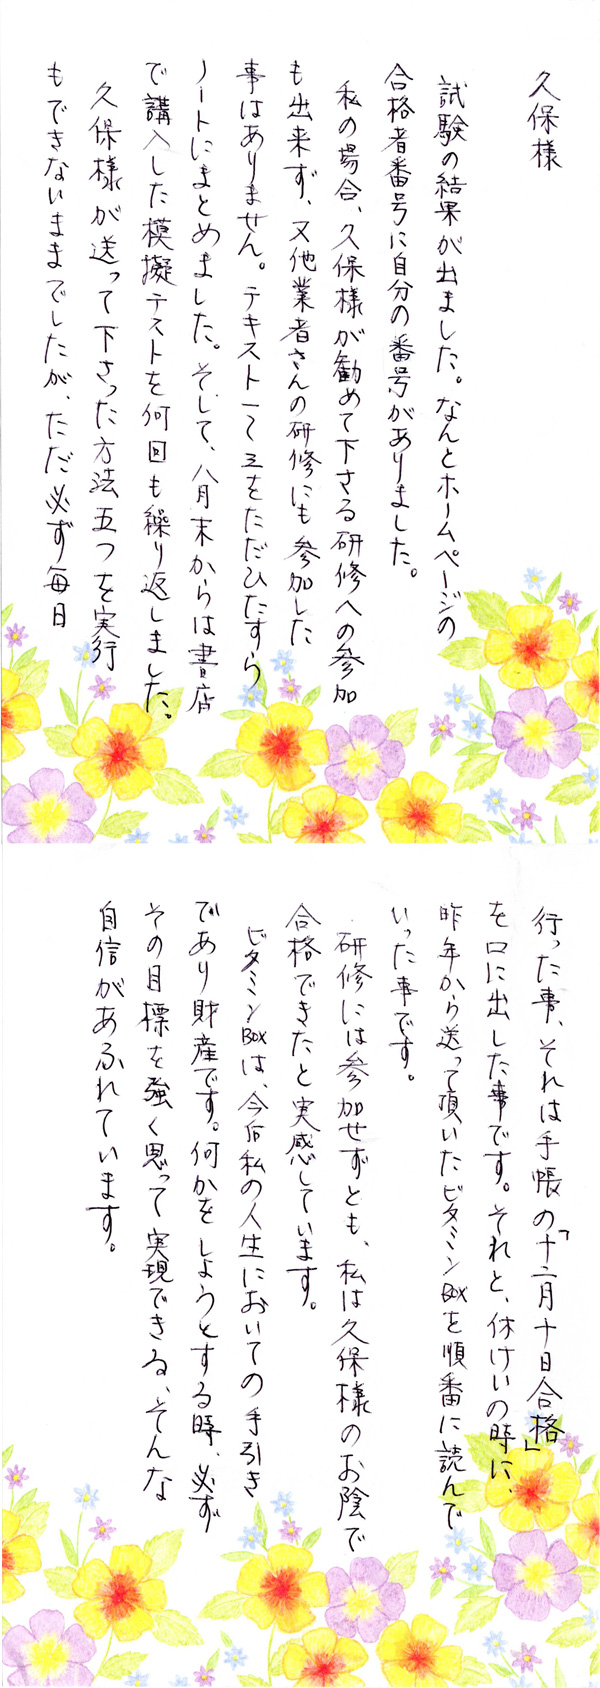 久保様
試験の結果が出ました。なんとホームページの
合格者番号に自分の番号がありました。
私の場合、久保様が勧めて下さる研修への参加
も出来ず、又他業者さんの研修にも参加した
事はありません。テキスト一〜三をただひたすら
ノートにまとめました。そして、八月末からは書店
で講入した模擬テストを何回も繰り返しました。
久保様が送って下さった方法五つを実行
もできないままでしたが、ただ必ず毎日
行った事、それは手帳の「十二月十日合格」
を口に出した事です。それと、休けいの時に、
昨年から送って頂いたビタミンBOXを順番に読んで
いった事です。
研修には参加せずとも、私は久保様のお陰で
合格できたと実感しています。
ビタミンBOXは、今后私の人生においての手引き
であり財産です。何かをしようとする時、必ず
その目標を強く思って実現できる、そんな
自信があふれています。